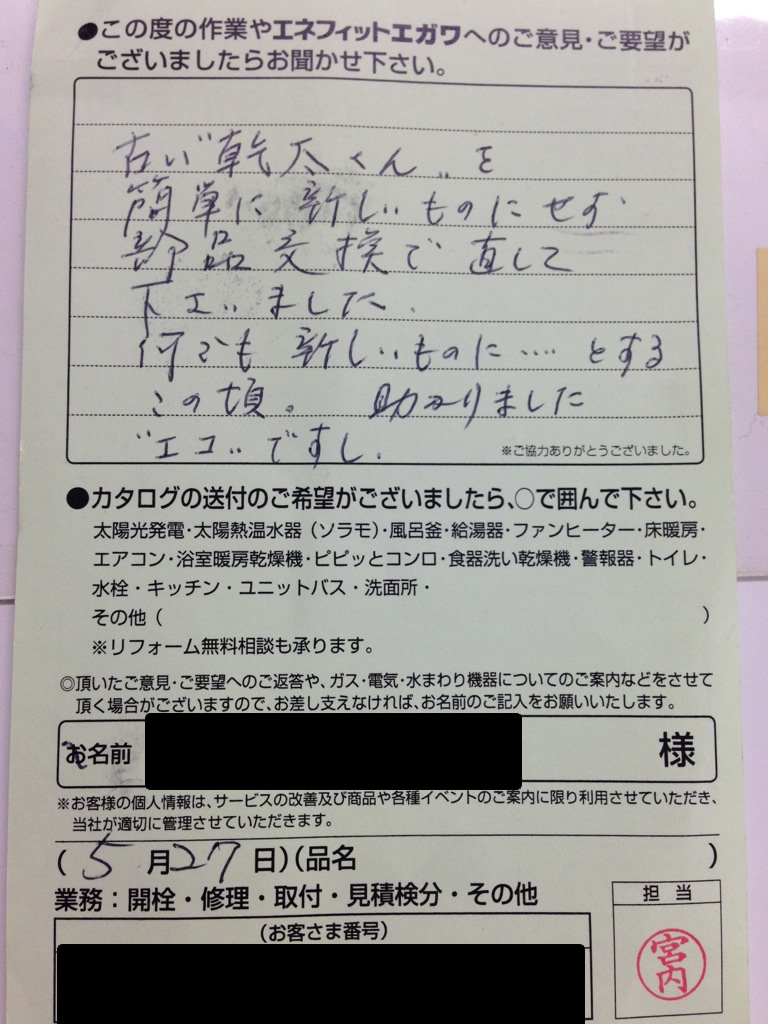 ●この度の作業やエネフィットエガワへのご意見・ご要望が
ございましたらお聞かせ下さい。
古い〝乾太くん〟を
簡単に新しいものにせず
部品交換で直して
下エいました.
何でも新しいものに‥‥とする
この頃。助かりました
〝エコ〟ですし.
※ご協力ありがとうございました。
●カタログの送付のご希望がございましたら、○で囲んで下さい。
太陽光発電・太陽熱温水器（ソラモ）・風呂釜・給湯器・ファンヒーター・床暖房・
エアコン・浴室暖房乾燥機・ピピッとコンロ・食器洗い乾燥機・警報器・トイレ・
水栓・キッチン・ユニットバス・洗面所・
その他（　）
※リフォーム無料相談も承ります。
◎頂いたご意見・ご要望へのご返答や、ガス・電気・水まわり機器についてのご案内などをさせて
頂く場合がございますので、お差し支えなければ、お名前のご記入をお願いいたします。
お名前　様
※お客様の個人情報は、サービスの改善及び商品や各種イベントのご案内に限り利用させていただき、
当社が適切に管理させていただきます。
（5月27日）（品名　）
業務：開栓・修理・取付・見積検分・その他
担当
（お客さま番号）
宮内